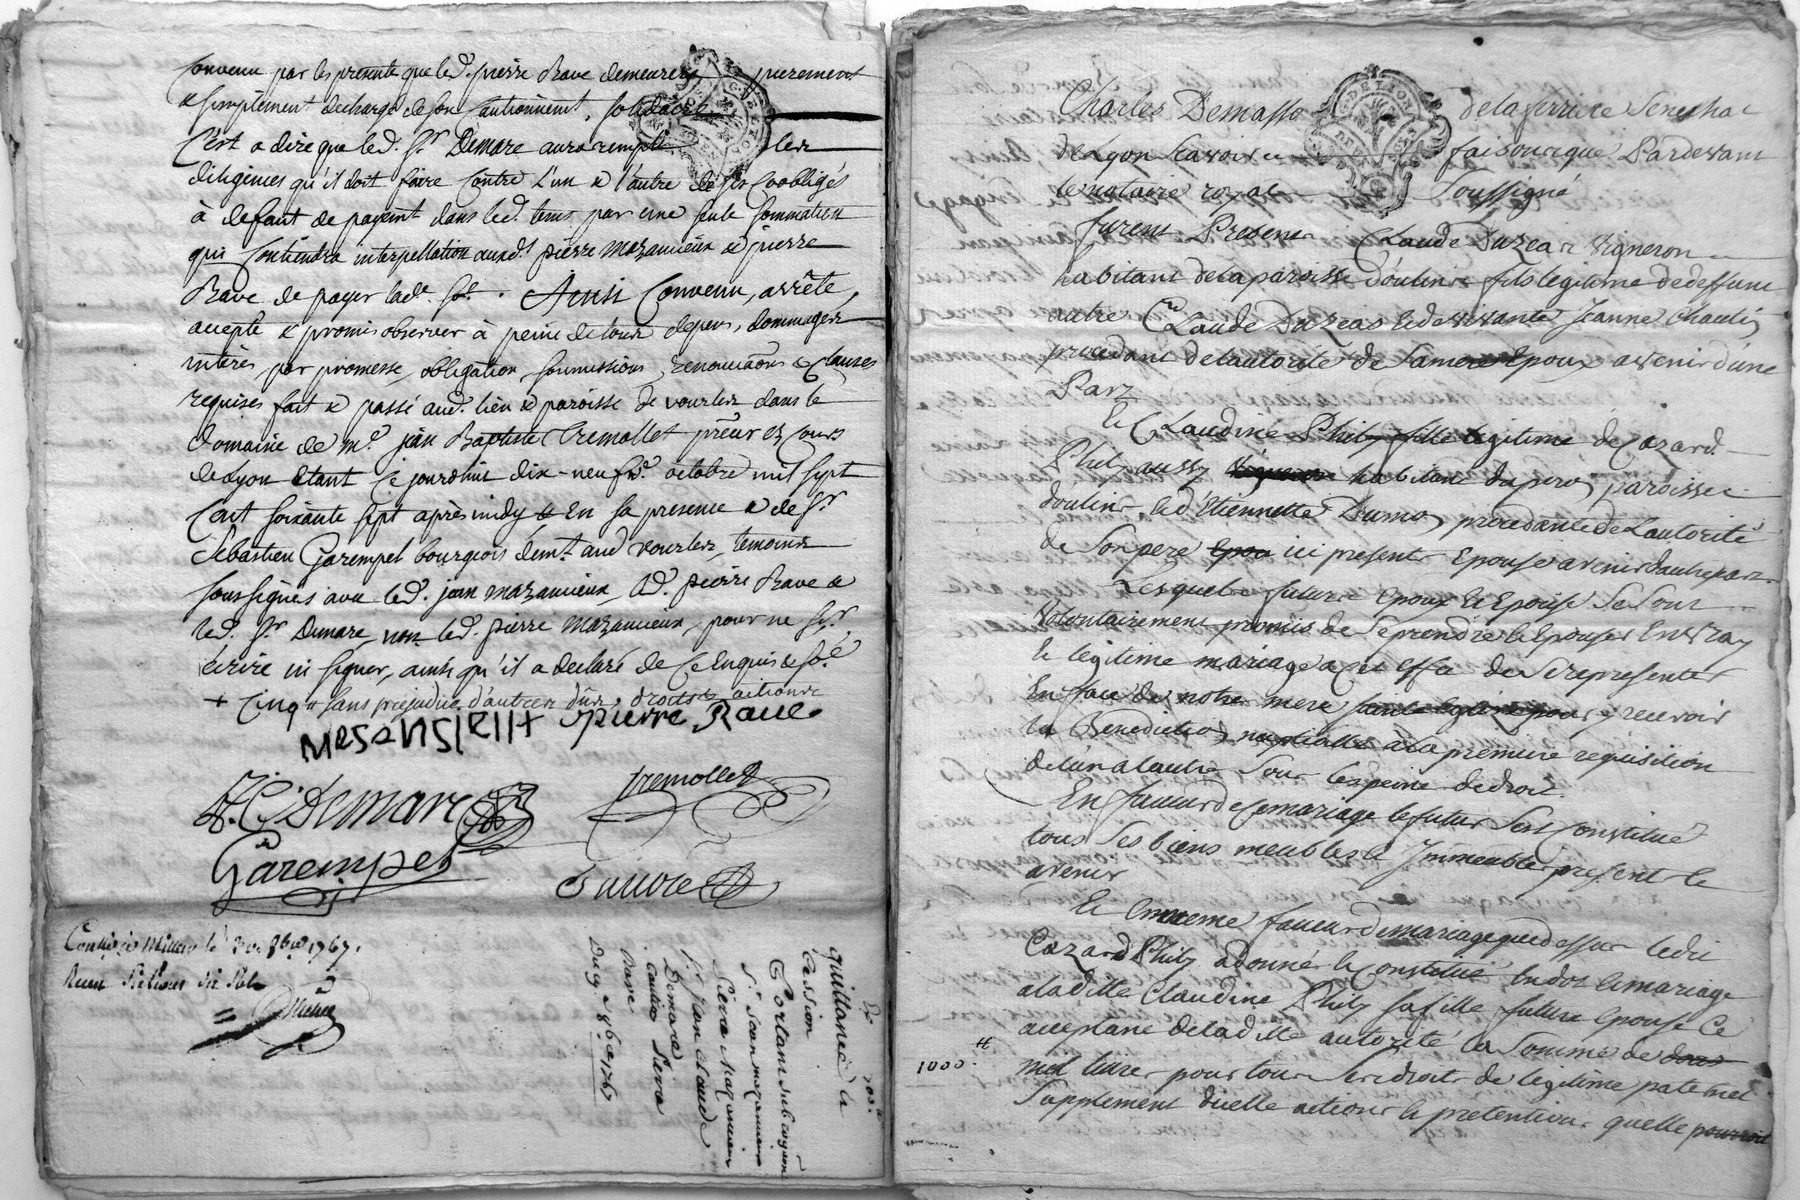 Convenu par les presente que led. pierre Rave demeurera purement
& simplement decharge de son Cautionnemt, solidaire
C'est a dire que led. Sr Demare aura rempli les
diligences qu'il doit faire Contre l'un & l'autre de ses Coobligés
à defaut de payemt dans led. tems par une seule sommation
qui Contiendra interpellation auxd. pierre mazanieux & pierre
Rave de payer lade. So. Ainsi Convenu, arrêté,
accepté & promis observer à peine de tous depens, dommages
intérès, par promesse, obligation, soumissions, renonciaons & clauses
requises fait & passé aud. lieu & paroisse de vourles dans le
domaine de me. jean Baptiste Tremollet preur es Cours
de Lyon Etant Ce jourdhui dix-neuf octobre mil sept
Cent soixante sept après midy En sa presence & de Sr
Sébastien Garempel bourgeois demt. aud vourles, temoins
soussignés avec led. jean mazanieux, led. pierre Rave &
led. Sr Demare, non led. pierre mazanieux, pour ne sçr.
écrire ni signer, ainsi qu'il a declaré de Ce Enquis & so.é
+ Cinq # sans prejudice d'autres dûs, droits & actions
pierre Rave
Tremollet
J. C. Demare
Garempel
1767.
quittance &
Cession
Sr Jean mazanieux
Sr Jean Claude
Demare
Rave
Caution
Du 19. 8bre 1767
Charles Demasso de la ferriere Senechal
de Lyon Scavoir faisons que Pardevant
le notaire royal Soussigné
furent Presents Claude Duzeas Vigneron
habitant de la paroisse d'oulins fils legitime de deffunt
autre Claude Duzeas & de vivante Jeanne
procedant de l'autorité de Sa mere Epoux avenir d'une
Part
Et Claudine Phily fille legitime de Cazard
Phily aussy vigneron habitant du perou paroisse
doulins & d'Etiennette Dumos procedante de L'autorité
de Son pere ici present Epouse avenir d'autre part
Lesquels futurs Epoux Et Epouse Se Sont
Volontairement promis de Se prendre & Epouser En vray
& legitime mariage a cet effet de Se representer
En face de notre mere Sainte eglise pour y recevoir
la Benediction nuptialle a la premiere requisition
de l'un a l'autre Sous les peine de droit
En faveur de Ce mariage le futur Sest Constitué
tous Ses biens meubles & Immeubles presents &
avenir
Et Emmeme faveur de mariage que dessus ledit
Cazard Phily a donné & Constitué En dot & mariage
a ladite Claudine Phily Sa fille future Epouse Ce
aceptant de ladite autorité la Somme de
1000 # mil livres pour tous Ses droits de legitime paternel
Supplement d'icelle actions & pretentions quelle pourroit